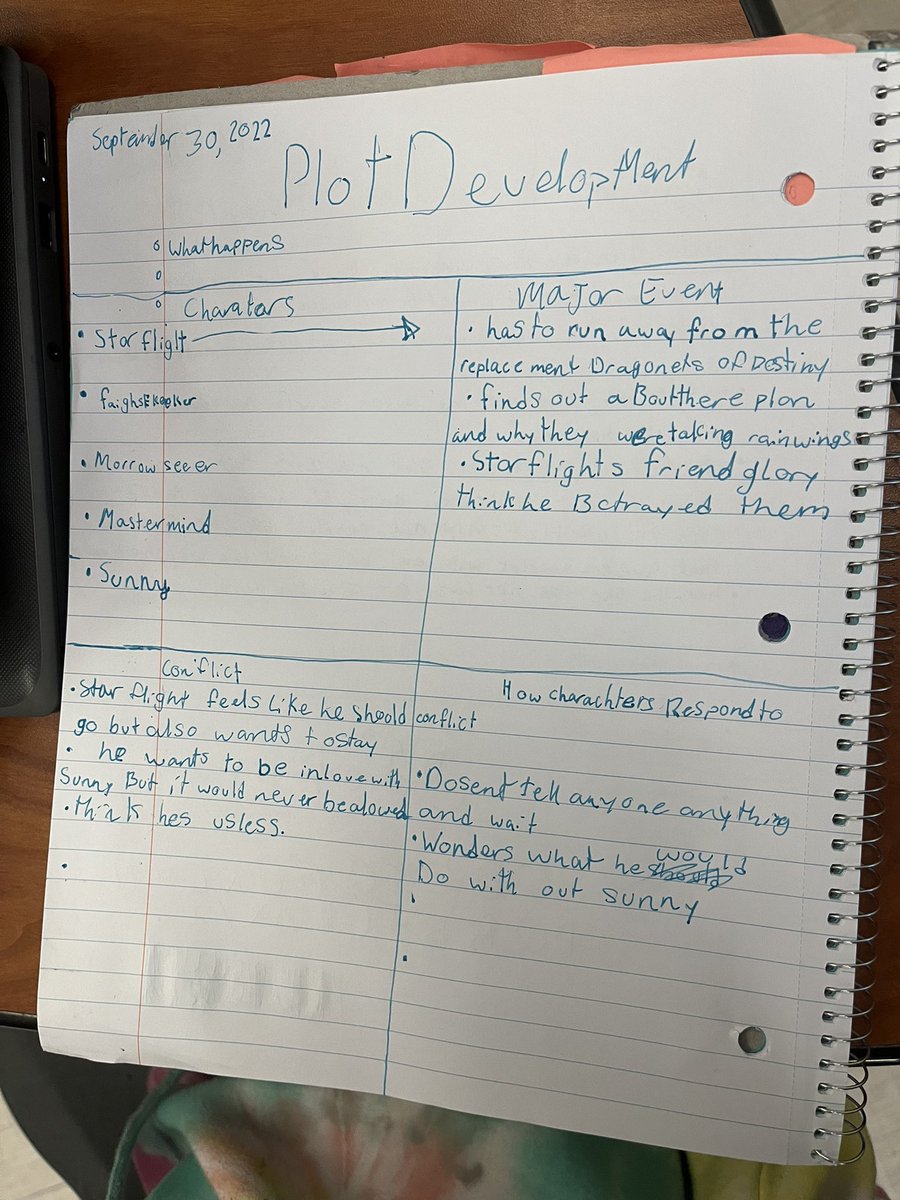 September 30, 2022
Plot Development
What happens
Charaters
• Starflight
• Morrow seer
• Mastermind
• Sunny
Major Event
• has to run away from the
replacement Dragonets of Destiny
• finds out a Bout there plan
and why they were taking rainwings
• Starflights friend glory
think he Betrayed them
Conflict
• Star flight feels like he should
go but also wants to stay
• he wants to be in love with
Sunny But it would never be alowed
• think hes usless.
How charachters Respond to
conflict
• Dosent tell anyone anything
and wait
• Wonders what he would
Do with out sunny